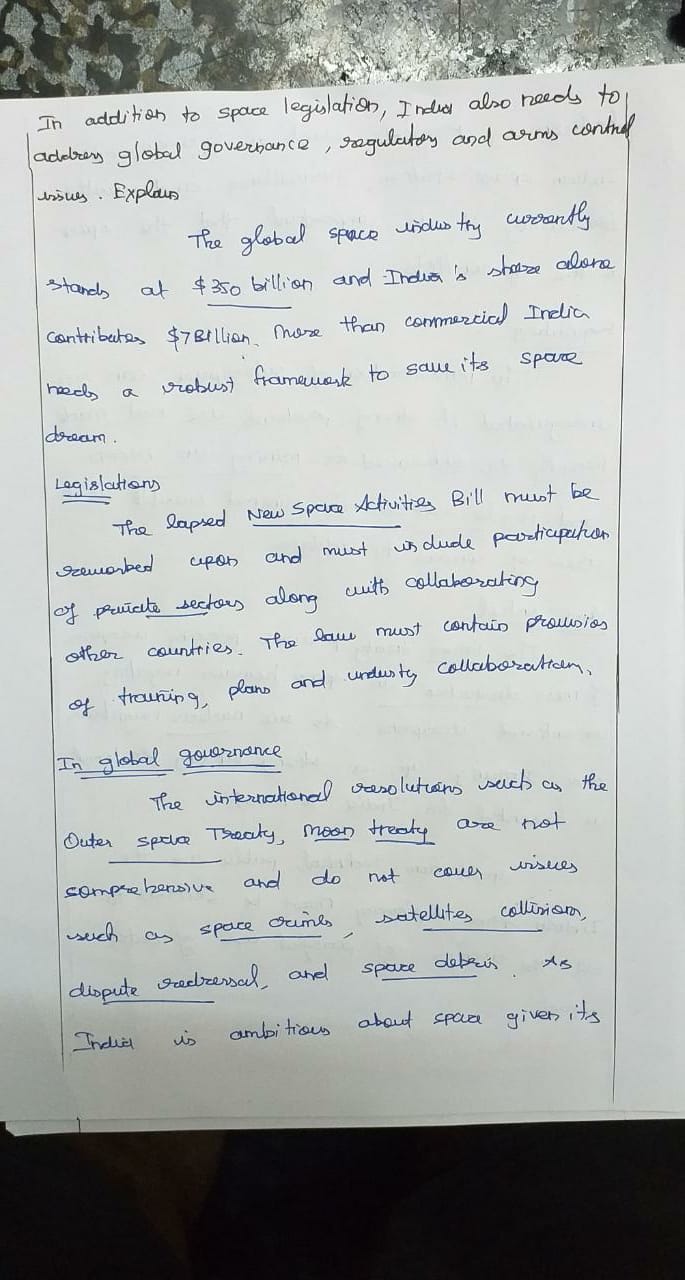 In addition to space legislation, India also needs to
address global governance, regulatory and arms control
issues. Explain
The global space industry currently
stands at $350 billion and India's share alone
contributes $7Billion. More than commercial India
needs a robust framework to save its space
dream.
Legislations
The lapsed New Space Activities Bill must be
reworked upon and must include participation
of private sectors along with collaborating
other countries. The law must contain provision
of training, plans and industy collaboration.
In global governance
The international resolutions such as the
Outer space Treaty, Moon treaty are not
comprehensive and do not cover issues
such as space crimes, satellites collision,
dispute redressal, and space debris. As
India is ambitious about space given its